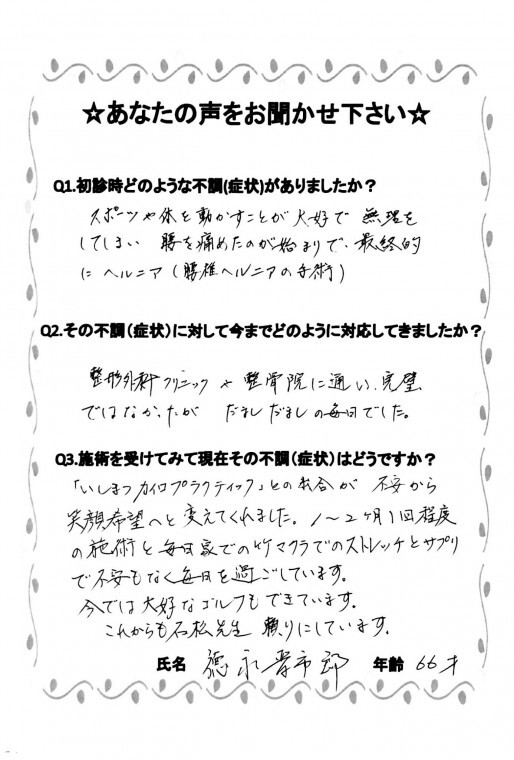 ☆あなたの声をお聞かせ下さい☆
Q1.初診時どのような不調(症状)がありましたか?
スポーツや体を動かすことが大好で 無理を
してしまい 腰を痛めたのが始まりで、最終的
に ヘルニア (腰椎ヘルニアの手術)
Q2.その不調(症状)に対して今までどのように対応してきましたか?
整形外科クリニック や 整骨院に通い、完璧
ではなかったが だましだましの毎日でした。
Q3.施術を受けてみて現在その不調(症状)はどうですか?
「いしまつカイロプラクティック」との出合が 不安から
笑顔希望へと変えてくれました。1〜2ヶ月1回程度
の施術と毎日家での竹マクラでのストレッチとサプリ
で不安もなく毎日を過ごしています。
今では大好なゴルフもできています。
これからも石松先生 頼りにしています。
氏名 徳永 市郎 年齢 66才